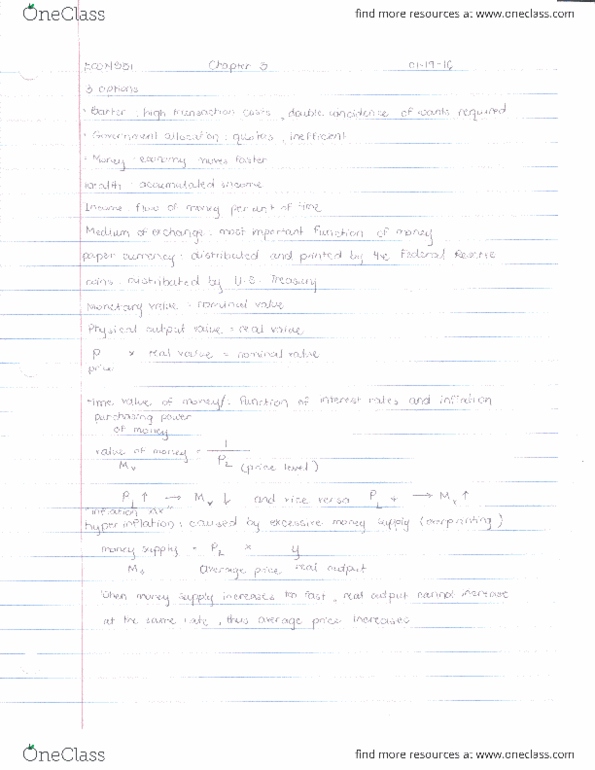 OneClass
find more resources at: www.oneclass.com
ECON 351 Chapter 3 01-19-16
3 options
· Barter: high transaction costs, double coincidence of wants required
· Government allocation: quotas, inefficient
· Money: economy moves faster
wealth: accumulated income
Income: flow of money per unit of time
Medium of exchange: most important function of money
paper currency: distributed and printed by the Federal Reserve
coins: distributed by U.S. Treasury
Monetary value = nominal value
Physical output value = real value
P × real value = nominal value
price
Time value of money: function of interest rates and inflation
purchasing power
of money
value of money = 1
Mv PL (price level)
PL ↑ → Mv ↓ and vice versa PL ↓ → Mv ↑
"inflation tax"
hyperinflation: caused by excessive money supply (overprinting)
money supply = PL × y
Ms average price real output
When money supply increases too fast, real output cannot increase
at the same rate, thus average price increases
OneClass
find more resources at: www.oneclass.com